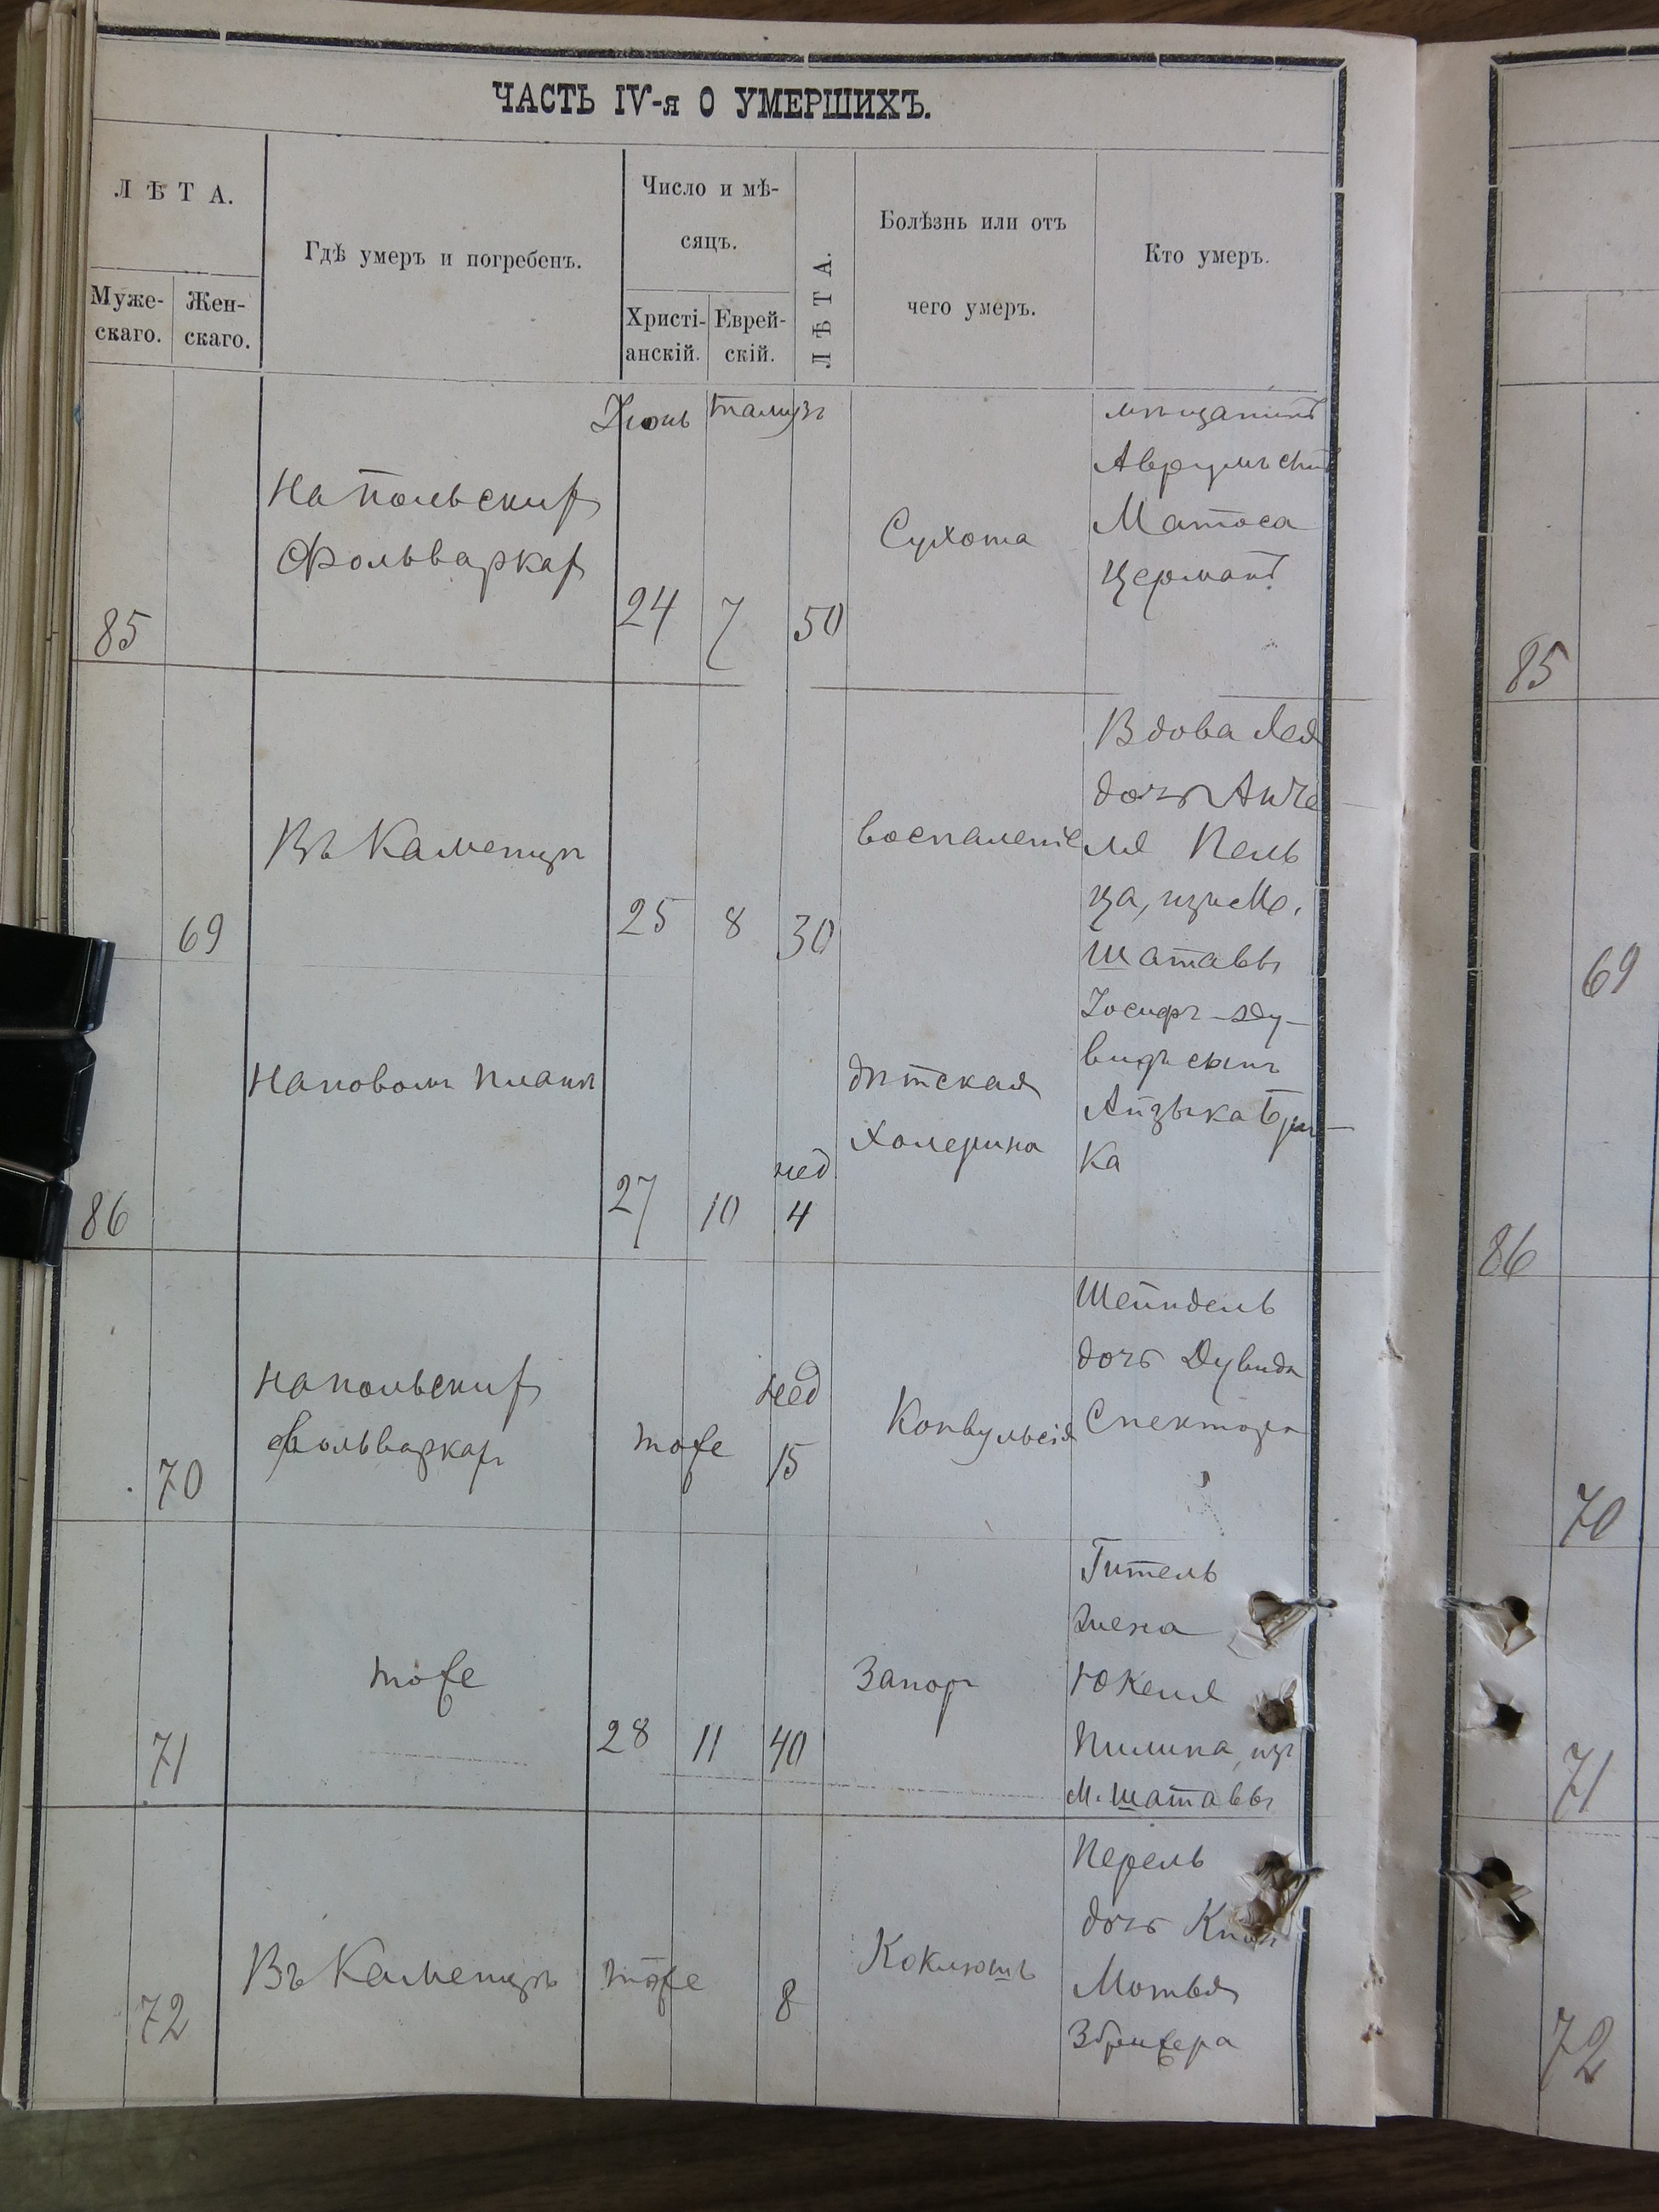 ЧАСТЬ IV-я О УМЕРШИХЪ.
ЛѢТА.
Муже-
скаго.
Жен-
скаго.
Гдѣ умеръ и погребенъ.
Число и мѣ-
сяцъ.
Христі-
анскій.
Еврей-
скій.
ЛѢТА.
Болѣзнь или отъ
чего умеръ.
Кто умеръ.
Іюнь
тамузъ
85
На Польских
Фольварках
24
7
50
Сухота
мѣщанинъ
Аврумъ сынъ
Матоса
Церманъ
85
69
Въ Каменцѣ
25
8
30
воспаленіе
Вдова Лея
дочь Анче
ля Пель
ца, изъ м.
Шатавы
69
86
На новомъ планѣ
27
10
нед
4
дѣтская
холерина
Іосифъ-Ду-
видъ сынъ
Айзыка
ка
86
70
На польских
фольварках
тоже
нед
15
Конвульсія
Шейндель
дочь Дувида
Спектора
70
71
тоже
28
11
40
Запоръ
Гитель
жена
Юкеля
Пилипа, изъ
м. Шатавы
71
72
Въ Каменцѣ
тоже
8
Коклюшъ
Перель
дочь
Мотья
Збрижера
72